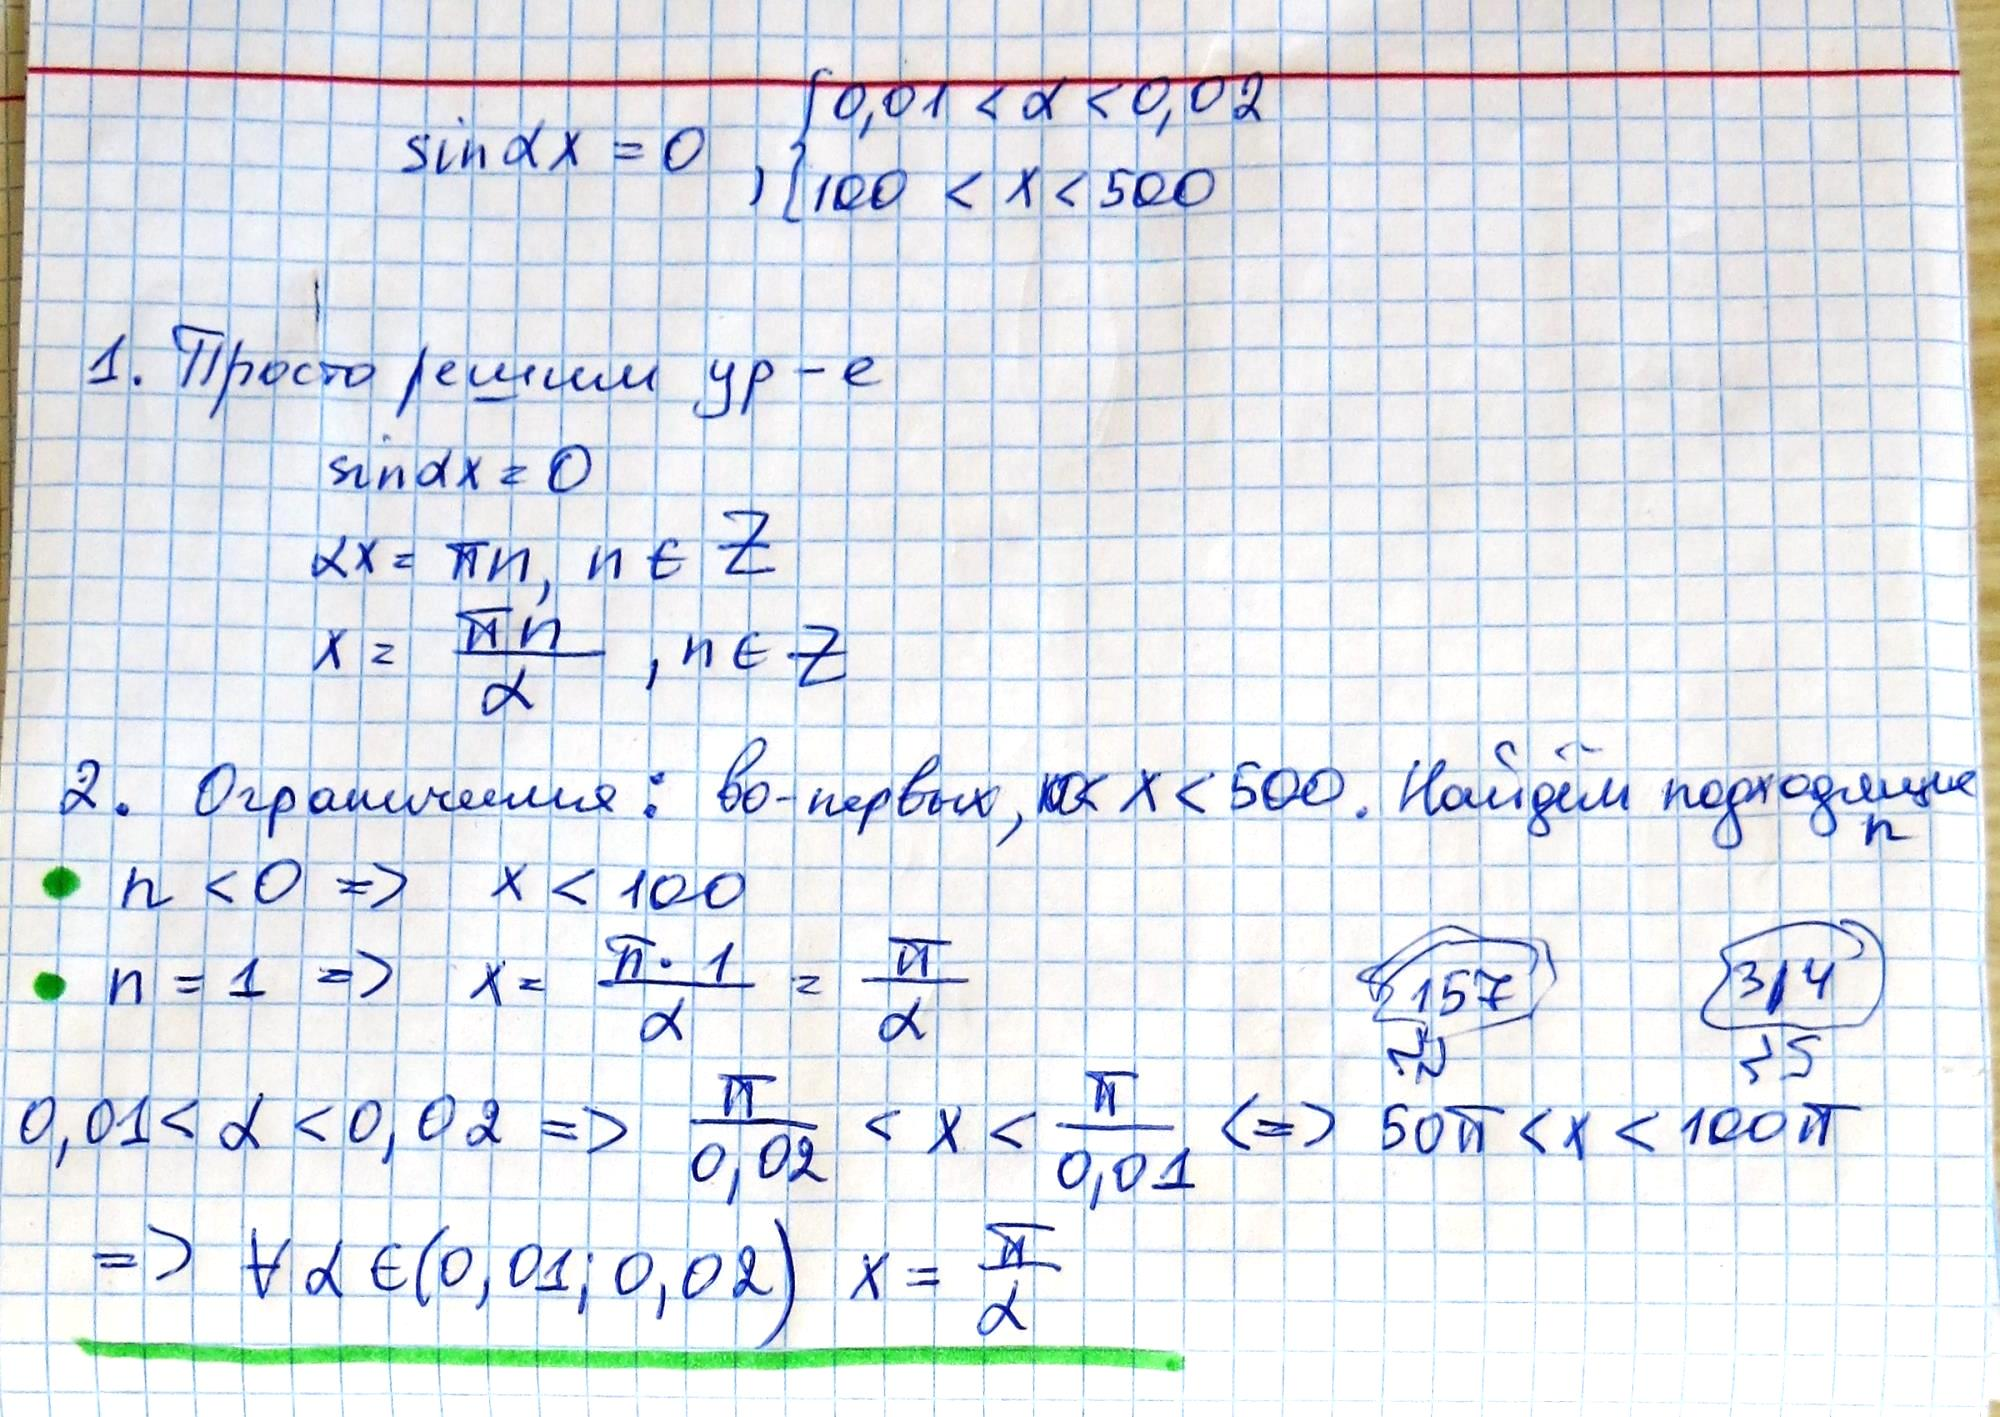 sin αx = 0 , { 0,01 < α < 0,02
100 < x < 500
1. Просто решим ур-е
sin αx = 0
αx = πn, n ∈ Z
x = πn/α , n ∈ Z
2. Ограничения: во-первых, < x < 500. Найдём подходящие n
• n < 0 => x < 100
• n = 1 => x = π·1/α = π/α
157 314
0,01 < α < 0,02 => π/0,02 < x < π/0,01 <=> 50π < x < 100π
=> ∀ α ∈ (0,01; 0,02) x = π/α